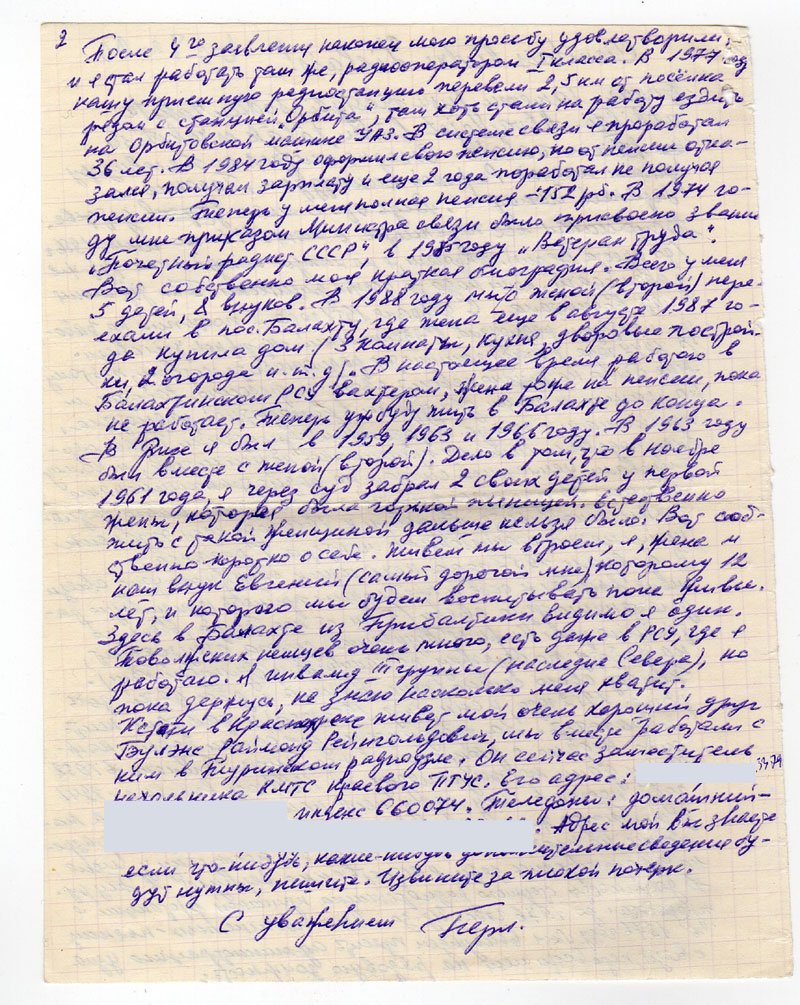 2
После 4го заявления наконец мою просьбу удовлетворили
и я стал работать там же, радиооператором I класса. В 1977 году
нашу приёмную радиостанцию перевели 2,5 км от посёлка
рядом с станцией „Орбита“, там хоть стали на работу ездить
на орбитовской машине УАЗ. В системе связи я проработал
36 лет. В 1984 году оформил свою пенсию, но от пенсии отка-
зался, получал зарплату и еще 2 года поработал не получая
пенсии. Теперь у меня полная пенсия - 152 рб. В 1974 го-
ду мне приказом Министра связи было присвоено звание
„Почетный радист СССР“, в 1985 году „Ветеран труда“.
Вот собственно моя краткая биография. Всего у меня
5 детей, 8 внуков. В 1988 году мы с женой (второй) пере-
ехали в пос. Балахту, где жена еще в августе 1987 го-
да купила дом (3 комнаты, кухня, дворовые построй-
ки, 2 огорода и т.д). В настоящее время работаю в
Балахтинском РСУ вахтером, жена тоже на пенсии, пока
не работает. Теперь уж буду жить в Балахте до конца.
В Риге я был в 1959, 1963 и 1966 году. В 1963 году
был вместе с женой (второй). Дело в том, что в ноябре
1961 года, я через суд забрал 2 своих детей у первой
жены, которая была женщиной. естественно
жить с такой женщиной дальше нельзя было. Вот собс-
твенно коротко о себе. Живем мы втроем, я, жена и
наш внук Евгений (самый дорогой мне) которому 12
лет, и которого мы будем воспитывать пока живы.
Здесь в Балахте из Прибалтики видимо я один.
Поволжских немцев очень много, есть даже в РСУ, где я
работаю. Я инвалид III группы (наследие Севера), но
пока держусь, не знаю насколько меня хватит.
Кстати в Красноярске живет мой очень хороший друг
Раймонд Рейнгольдович, мы вместе работали с
ним в Туринском радиоузле. Он сейчас заместитель
начальника КМТС Краевого ПТУС. Его адрес:
индекс 660074. Телефоны: домашний-
. Адрес мой вы знаете
если что-нибудь, какие-нибудь дополнительные сведения бу-
дут нужны, пишите. Извините за плохой почерк.
С уважением